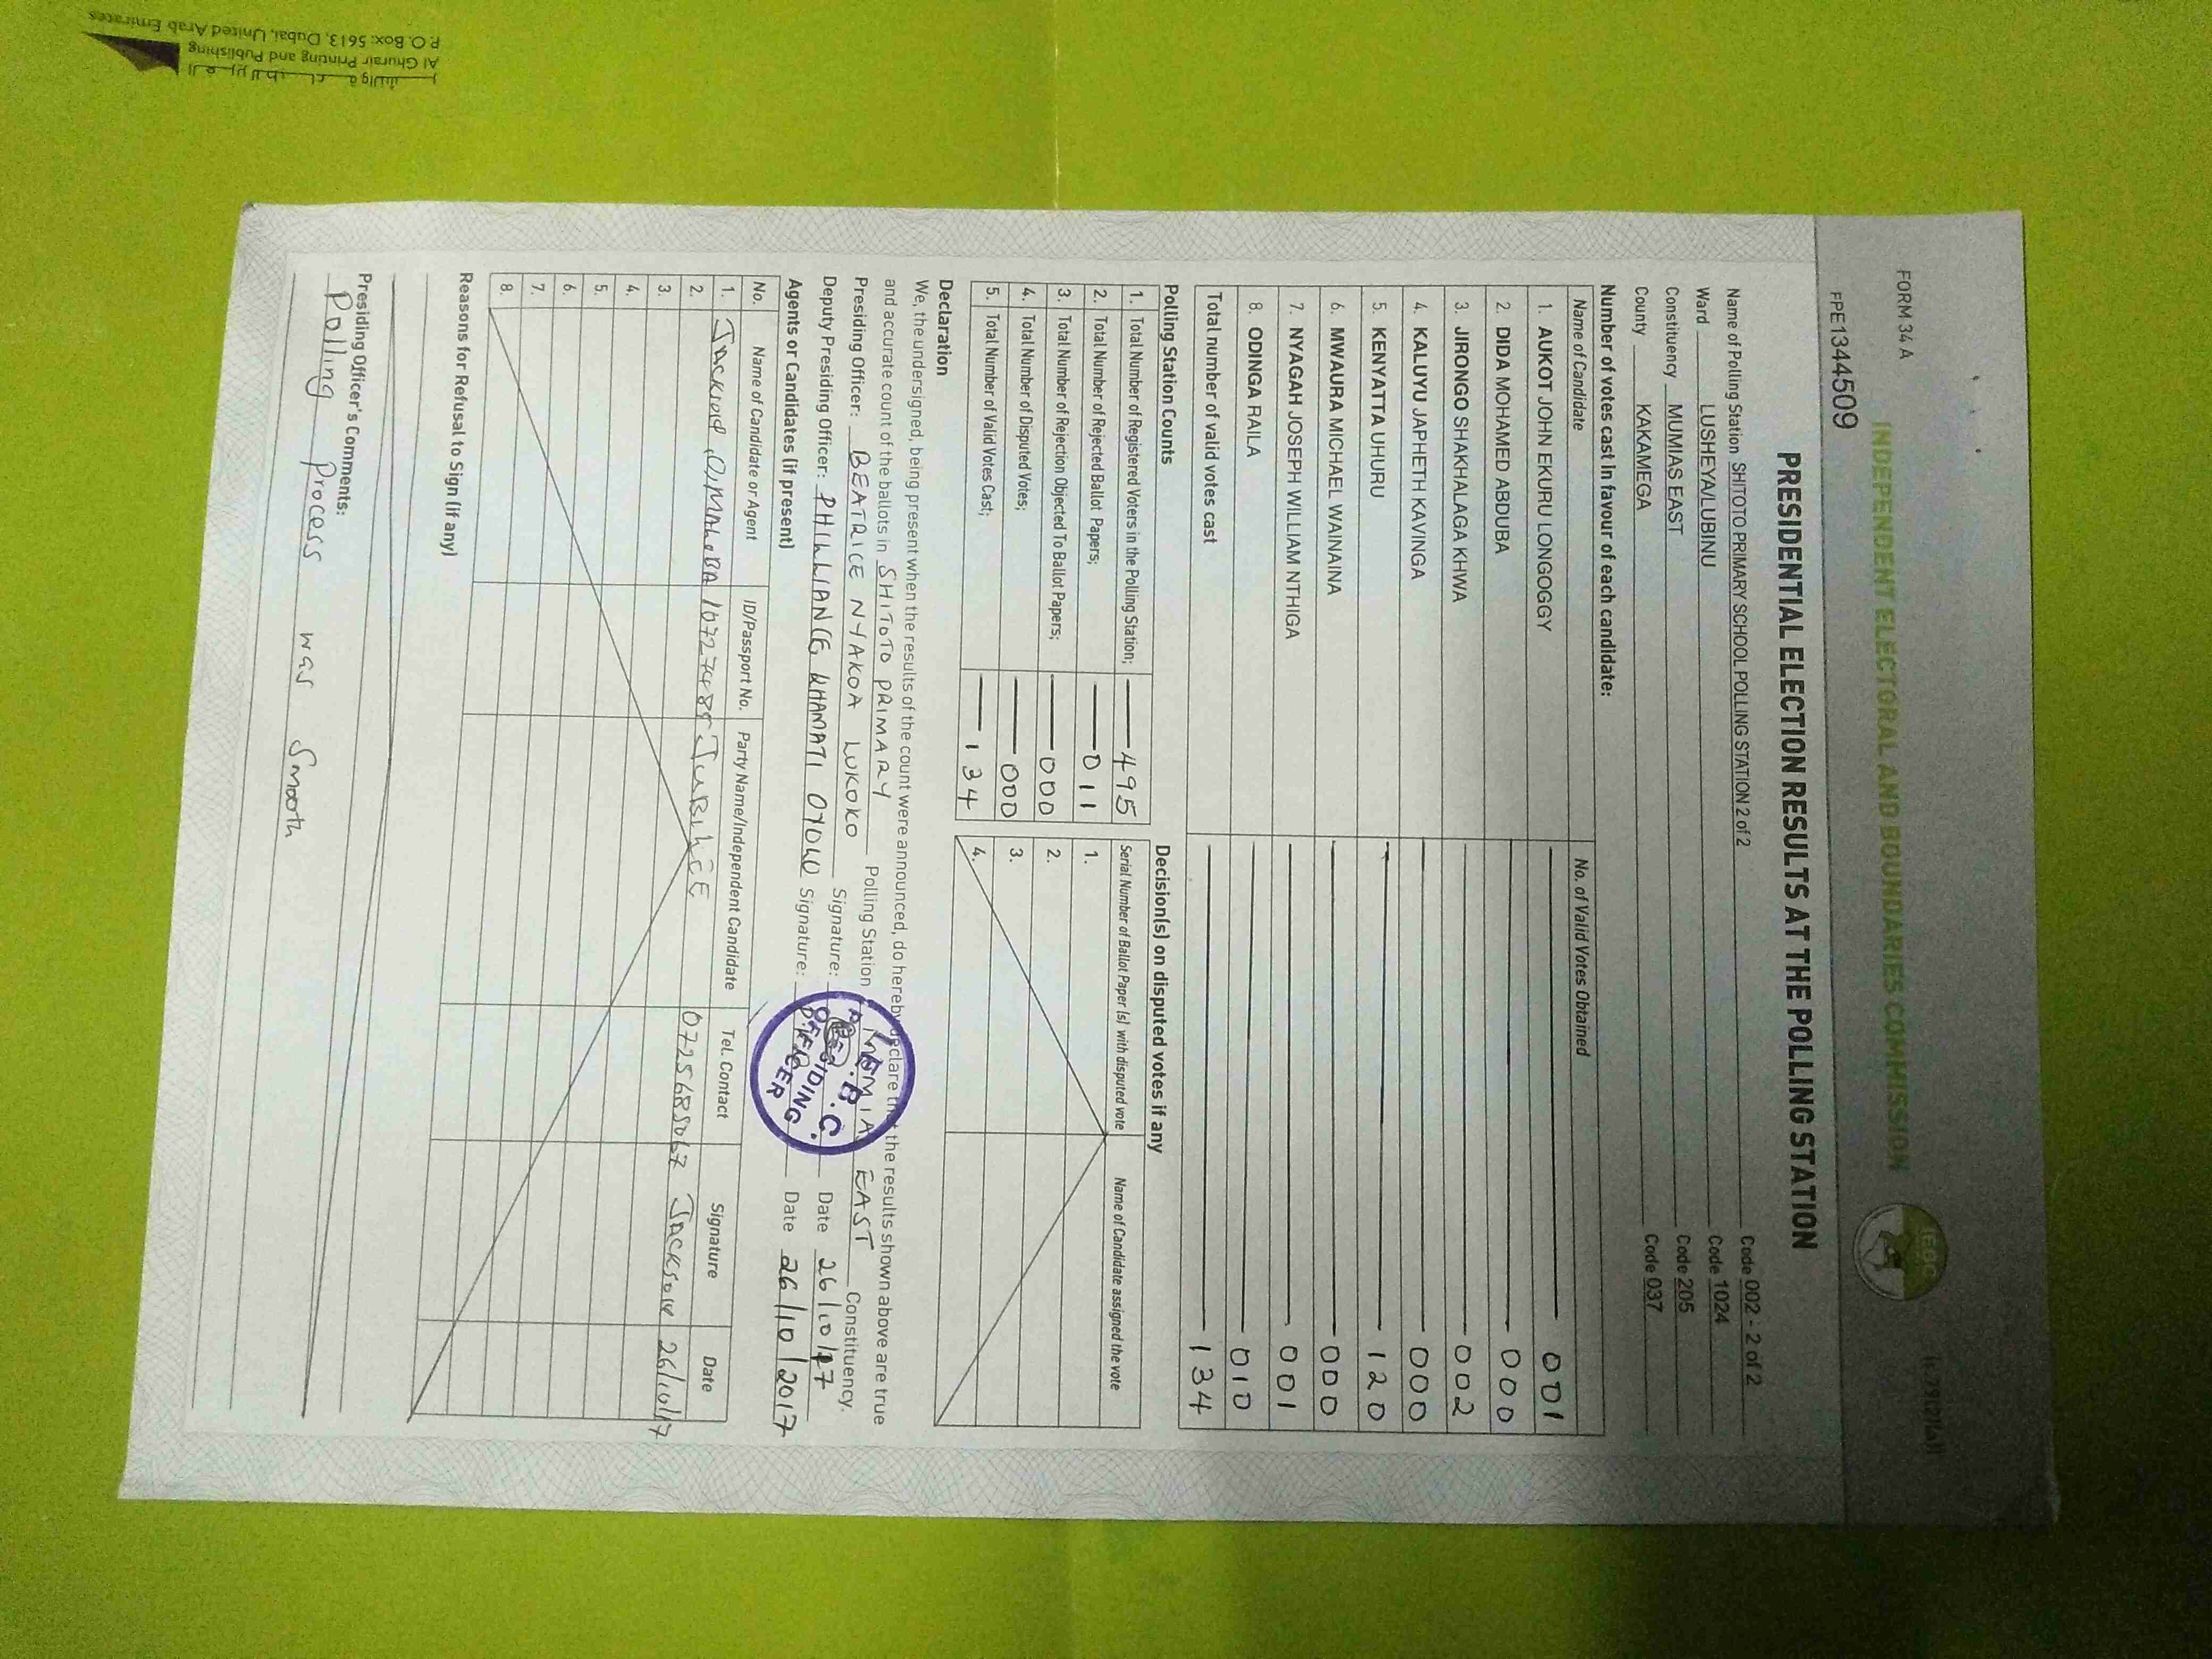 FORM 34 A
INDEPENDENT ELECTORAL AND BOUNDARIES COMMISSION
IEBC
FPE1344509
PRESIDENTIAL ELECTION RESULTS AT THE POLLING STATION
Name of Polling Station SHITOTO PRIMARY SCHOOL POLLING STATION 2 of 2 Code 002 - 2 of 2
Ward LUSHEYA/LUBINU Code 1024
Constituency MUMIAS EAST Code 205
County KAKAMEGA Code 037
Number of votes cast in favour of each candidate:
Name of Candidate No. of Valid Votes Obtained
1. AUKOT JOHN EKURU LONGOGGY 001
2. DIDA MOHAMED ABDUBA 000
3. JIRONGO SHAKHALAGA KHWA 002
4. KALUYU JAPHETH KAVINGA 000
5. KENYATTA UHURU 120
6. MWAURA MICHAEL WAINAINA 000
7. NYAGAH JOSEPH WILLIAM NTHIGA 001
8. ODINGA RAILA 010
Total number of valid votes cast 134
Polling Station Counts
1. Total Number of Registered Voters in the Polling Station; 495
2. Total Number of Rejected Ballot Papers; 011
3. Total Number of Rejection Objected To Ballot Papers; 000
4. Total Number of Disputed Votes; 000
5. Total Number of Valid Votes Cast; 134
Decision(s) on disputed votes if any
Serial Number of Ballot Paper (s) with disputed vote Name of Candidate assigned the vote
1.
2.
3.
4.
Declaration
We, the undersigned, being present when the results of the count were announced, do hereby declare that the results shown above are true
and accurate count of the ballots in SHITOTO PRIMARY Polling Station MUMIAS EAST Constituency.
Presiding Officer: BEATRICE NYAKOA LUKOKO Signature: Date 26/10/17
Deputy Presiding Officer: PHILLIANCE KHAMATI OYOLO Signature: Date 26/10/2017
I.E.B.C.
PRESIDING
OFFICER
Agents or Candidates (if present)
No. Name of Candidate or Agent ID/Passport No. Party Name/Independent Candidate Tel. Contact Signature Date
1. Jackson JUBILEE Jackson 26/10/17
2.
3.
4.
5.
6.
7.
8.
Reasons for Refusal to Sign (if any)
Presiding Officer's Comments:
Polling process was Smooth
Al Ghurair Printing and Publishing
P.O. Box: 5613, Dubai, United Arab Emirates